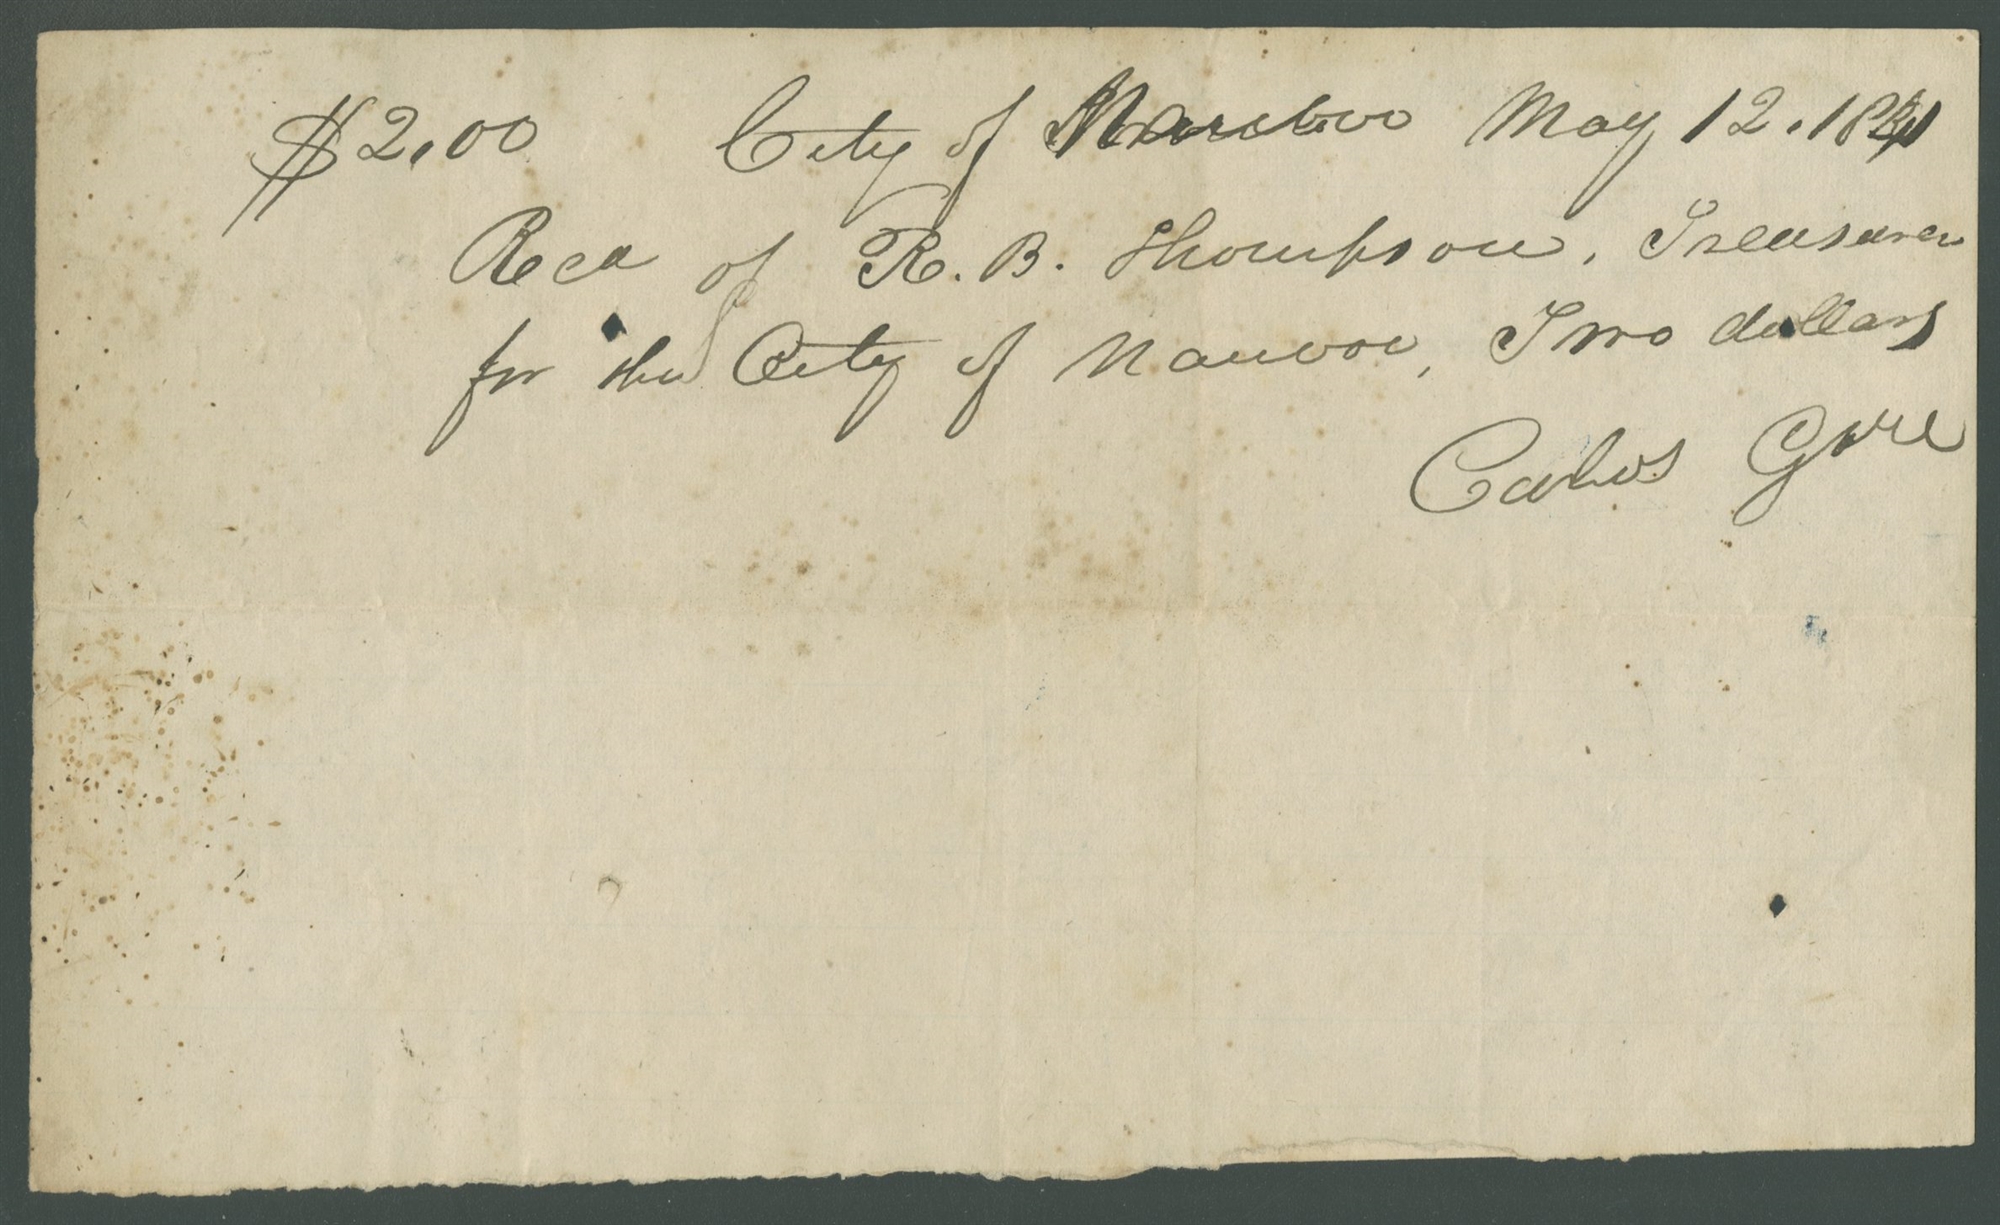 $2,00 City of Nauvoo May 12, 1841
Recd of R. B. Thompson, Treasurer
for the City of Nauvoo, Two dollars
Carlos Gove